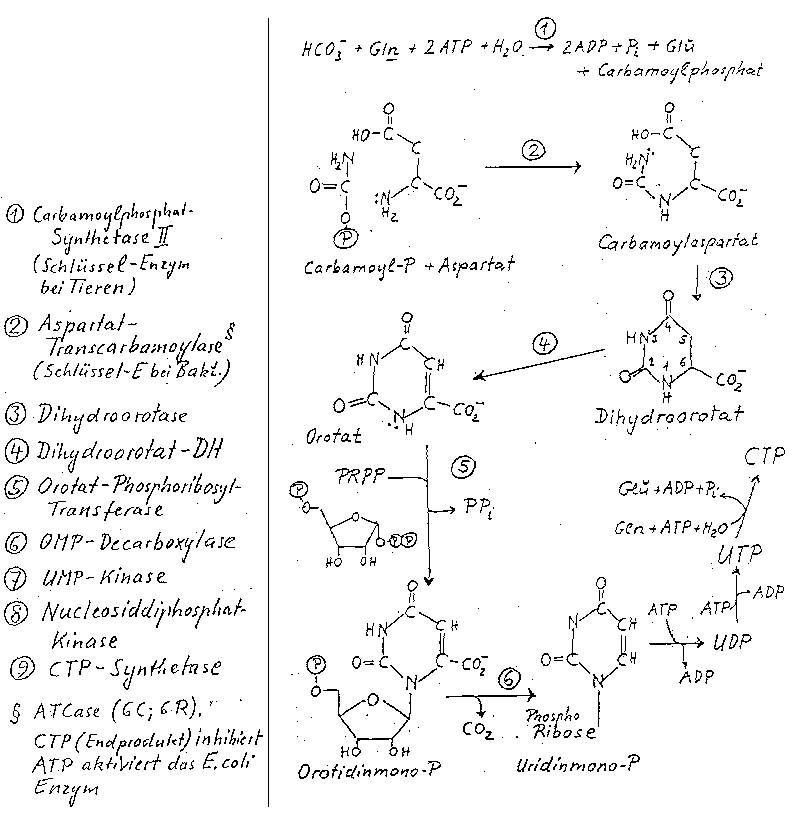 ① Carbamoylphosphat-
Synthetase II
(Schlüssel-Enzym
bei Tieren)
② Aspartat-
Transcarbamoylase§
(Schlüssel-E bei Bakt.)
③ Dihydroorotase
④ Dihydroorotat-DH
⑤ Orotat-Phosphoribosyl-
Transferase
⑥ OMP-Decarboxylase
⑦ UMP-Kinase
⑧ Nucleosiddiphosphat-
Kinase
⑨ CTP-Synthetase
§ ATCase (6C; 6R),
CTP (Endprodukt) inhibiert
ATP aktiviert das E. coli
Enzym
①
HCO₃⁻ + Gln + 2ATP + H₂O → 2ADP + Pᵢ + Glu
+ Carbamoylphosphat
O
HO-C
C
H₂N
O=C
C
CO₂⁻
O
:N
H₂
P
Carbamoyl-P + Aspartat
②
O
HO-C
H₂N:
C
O=C
C
CO₂⁻
N
H
Carbamoylaspartat
③
O
4
HN 3
5
2
1
6
O
N
H
CO₂⁻
Dihydroorotat
④
O
C
HN
CH
C
O
C
CO₂⁻
N
H
Orotat
⑤
PRPP
PPᵢ
P
O
O
O P P
HO OH
O
C
HN
C H
O=C
C
CO₂⁻
N
P
O
O
HO OH
Orotidinmono-P
⑥
CO₂
O
C
N
CH
O=C
CH
N
Phospho
Ribose
Uridinmono-P
ATP
ADP
UDP
ATP
ADP
UTP
Gln + ATP + H₂O
Glu + ADP + Pᵢ
CTP